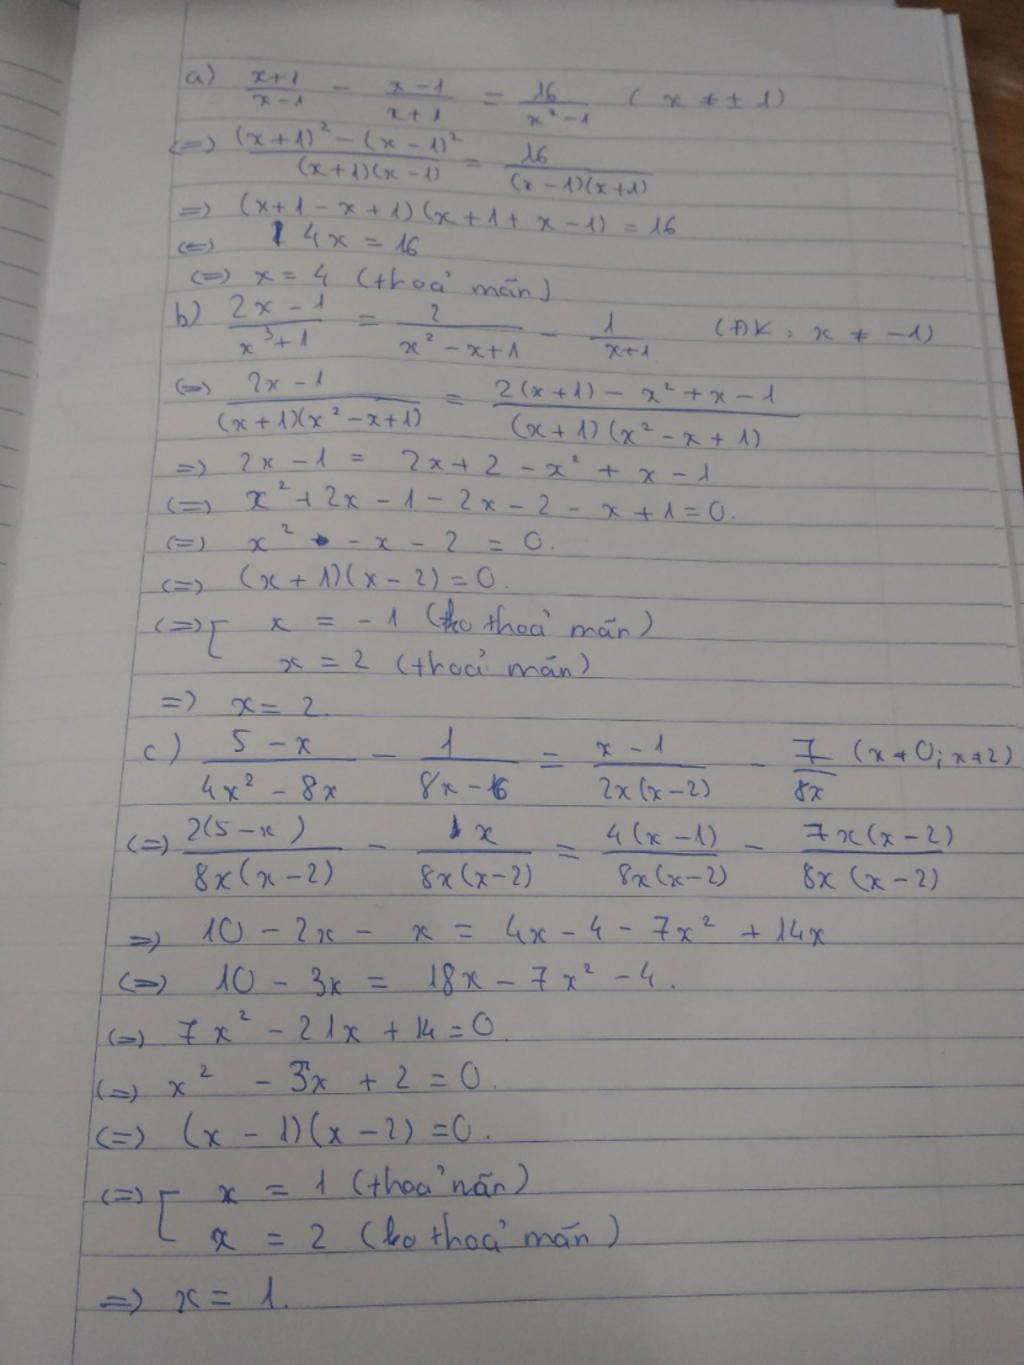 a) \frac{x+1}{x-1} - \frac{x-1}{x+1} = \frac{16}{x²-1} (x ≠ ±1)
(=) \frac{(x+1)²-(x-1)²}{(x+1)(x-1)} = \frac{16}{(x-1)(x+1)}
=) (x+1-x+1)(x+1+x-1) = 16
(=) 4x = 16
(=) x = 4 (thoả mãn)
b) \frac{2x-1}{x³+1} = \frac{2}{x²-x+1} - \frac{1}{x+1} (ĐK: x ≠ -1)
(=) \frac{2x-1}{(x+1)(x²-x+1)} = \frac{2(x+1)-x²+x-1}{(x+1)(x²-x+1)}
=) 2x-1 = 2x+2-x²+x-1
(=) x²+2x-1-2x-2-x+1=0.
(=) x² -x-2 = 0.
(=) (x+1)(x-2)=0.
(=) [ x = -1 (ko thoả mãn)
x = 2 (thoả mãn)
=) x = 2.
c) \frac{5-x}{4x²-8x} - \frac{1}{8x-16} = \frac{x-1}{2x(x-2)} - \frac{7}{8x} (x≠0; x≠2)
(=) \frac{2(5-x)}{8x(x-2)} - \frac{x}{8x(x-2)} = \frac{4(x-1)}{8x(x-2)} - \frac{7x(x-2)}{8x(x-2)}
=) 10-2x- x = 4x-4-7x²+14x
(=) 10-3x = 18x-7x²-4.
(=) 7x²-21x+14=0.
(=) x²-3x+2=0.
(=) (x-1)(x-2)=0.
(=) [ x = 1 (thoả mãn)
x = 2 (ko thoả mãn)
=) x = 1.